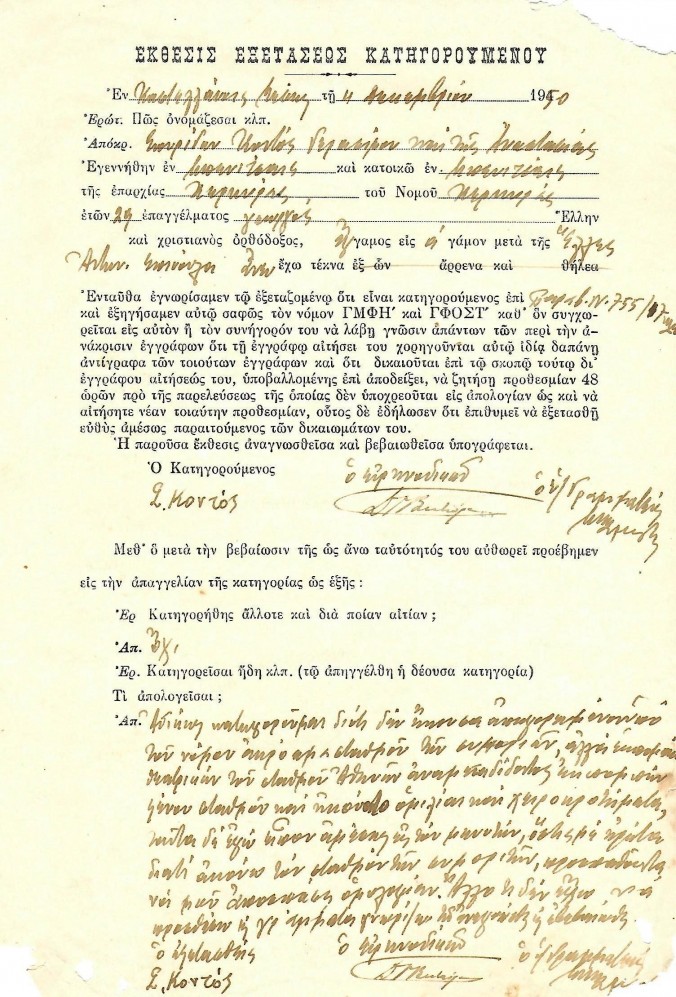 ΕΚΘΕΣΙΣ ΕΞΕΤΑΣΕΩΣ ΚΑΤΗΓΟΡΟΥΜΕΝΟΥ
Ἐν Καστελλάνους Μέσης τῇ 4 Δεκεμβρίου 1950
Ἐρώτ: Πῶς ὀνομάζεσαι κλπ.
Ἀπόκρ. Σπυρίδων Κοντός Γερασίμου καὶ τῆς Ἀναστασίας
Ἐγεννήθην ἐν Μπενίτσαις καὶ κατοικῶ ἐν Μπενίτσαις
τῆς ἐπαρχίας Κερκύρας τοῦ Νομοῦ Κερκύρας
ἐτῶν 29 ἐπαγγέλματος γεωργός Ἕλλην
καὶ χριστιανὸς ὀρθόδοξος, ἔγγαμος εἰς α΄ γάμον μετὰ τῆς
ἔχω τέκνα ἐξ ὧν ἄρρενα καὶ θήλεα
Ἐνταῦθα ἐγνωρίσαμεν τῷ ἐξεταζομένῳ ὅτι εἶναι κατηγορούμενος ἐπὶ Παραβ. Ν. 755/1917
καὶ ἐξηγήσαμεν αὐτῷ σαφῶς τὸν νόμον ΓΜΦΗ΄ καὶ ΓΦΟΣΤ΄ καθ᾽ ὃν συγχω-
ρεῖται εἰς αὐτὸν ἢ τὸν συνήγορόν του νὰ λάβῃ γνῶσιν ἁπάντων τῶν περὶ τὴν ἀ-
νάκρισιν ἐγγράφων ὅτι τῇ ἐγγράφῳ αἰτήσει του χορηγοῦνται αὐτῷ ἰδίᾳ δαπάνῃ
ἀντίγραφα τῶν τοιούτων ἐγγράφων καὶ ὅτι δικαιοῦται ἐπὶ τῷ σκοπῷ τούτῳ δι᾽
ἐγγράφου αἰτήσεώς του, ὑποβαλλομένης ἐπὶ ἀποδείξει, νὰ ζητήσῃ προθεσμίαν 48
ὡρῶν πρὸ τῆς παρελεύσεως τῆς ὁποίας δὲν ὑποχρεοῦται εἰς ἀπολογίαν ὡς καὶ νὰ
αἰτήσητε νέαν τοιαύτην προθεσμίαν, οὗτος δὲ ἐδήλωσεν ὅτι ἐπιθυμεῖ νὰ ἐξετασθῇ
εὐθὺς ἀμέσως παραιτούμενος τῶν δικαιωμάτων του.
Ἡ παροῦσα ἔκθεσις ἀναγνωσθεῖσα καὶ βεβαιωθεῖσα ὑπογράφεται.
Ὁ Κατηγορούμενος ὁ εἰρηνοδίκης ὁ Γραμματεύς
Σ. Κοντός
Μεθ᾽ ὃ μετὰ τὴν βεβαίωσιν τῆς ὡς ἄνω ταυτότητός του αὐθωρεὶ προέβημεν
εἰς τὴν ἀπαγγελίαν τῆς κατηγορίας ὡς ἑξῆς :
Ἐρ Κατηγορήθης ἄλλοτε καὶ διὰ ποίαν αἰτίαν ;
Ἀπ. Ὄχι
Ἐρ. Κατηγορεῖσαι ἤδη κλπ. (τῷ ἀπηγγέλθη ἡ δέουσα κατηγορία)
Τί ἀπολογεῖσαι ;
Ἀπ. Ἀδίκως κατηγοροῦμαι διότι δὲν ἤκουσα ἀπαγορευμένον ὑπὸ
τοῦ νόμου σταθμὸν τῶν συμμοριτῶν, ἀλλὰ
τοῦ σταθμοῦ Ἀθηνῶν
ξένου σταθμοῦ καὶ ἠκούοντο ὁμιλίαι καὶ χειροκροτήματα,
ταῦτα δὲ ἐγὼ εἶπον ἀμέσως εἰς τὸν ὅστις μὲ ἠρώτα
διατί ἀκούω τὸν σταθμὸν τῶν συμμοριτῶν, προσπαθῶντας
νὰ μοῦ ἀποσπάσῃ ὁμολογίαν. Ἄλλο τι δὲν ἔχω νὰ
προσθέσω γράμματα γνωρίζω
ὁ ἐξετασθείς ὁ εἰρηνοδίκης ὁ Γραμματεύς
Σ. Κοντός